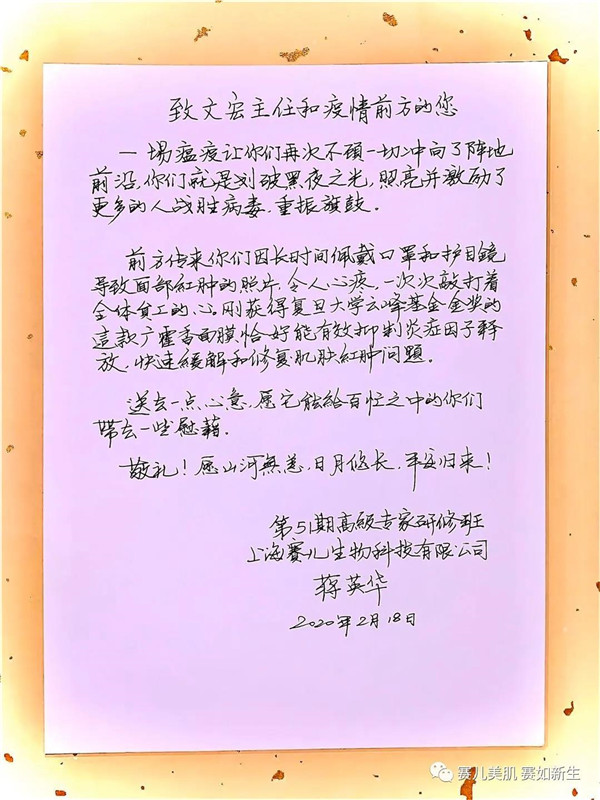 致文宏主任和疫情前方的您
一場瘟疫让你们再次不顾一切冲向了阵地
前沿,你们就是划破黑夜之光,照亮并激励了
更多的人战胜病毒,重振旗鼓.
前方传来你们因长时间佩戴口罩和护目鏡
导致面部紅肿的照片,令人心疼,一次次敲打着
全体员工的心。刚获得复旦大学云峰基金金奖的
這款广藿香面膜恰好能有效抑制炎症因子释
放,快速緩解和修复肌肤紅肿问題.
送去一点心意,愿它能給百忙之中的你们
带去一些慰藉.
敬礼!愿山河無恙,日月悠长,平安归来!
第51期高級专家研修班
上海赛儿生物科技有限公司
蒋英华
2020年2月18日
赛儿美肌 赛如新生